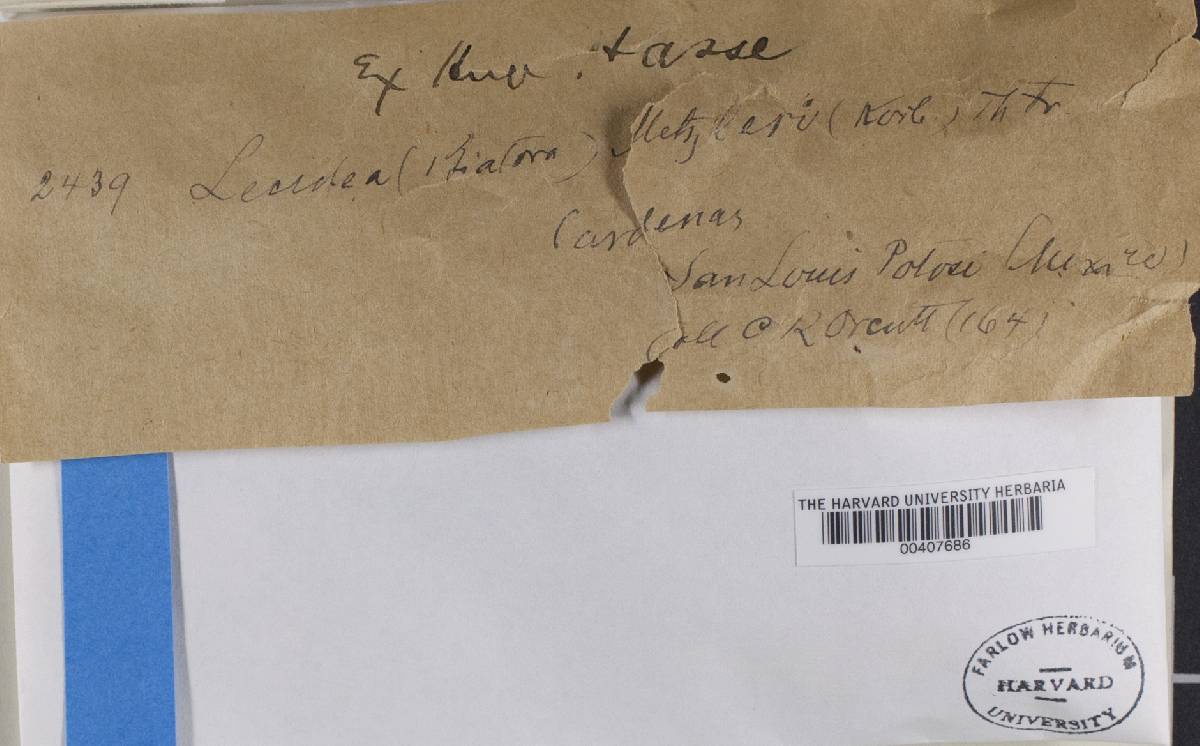 Ex Herb. Hasse
2439 Lecidea (Biatora) Metzleri (Korb.) Th Fr.
Cardenas
San Louis Potosi (Mexico)
Coll C R Orcutt (164)
THE HARVARD UNIVERSITY HERBARIA
00407686
FARLOW HERBARIUM
HARVARD
UNIVERSITY